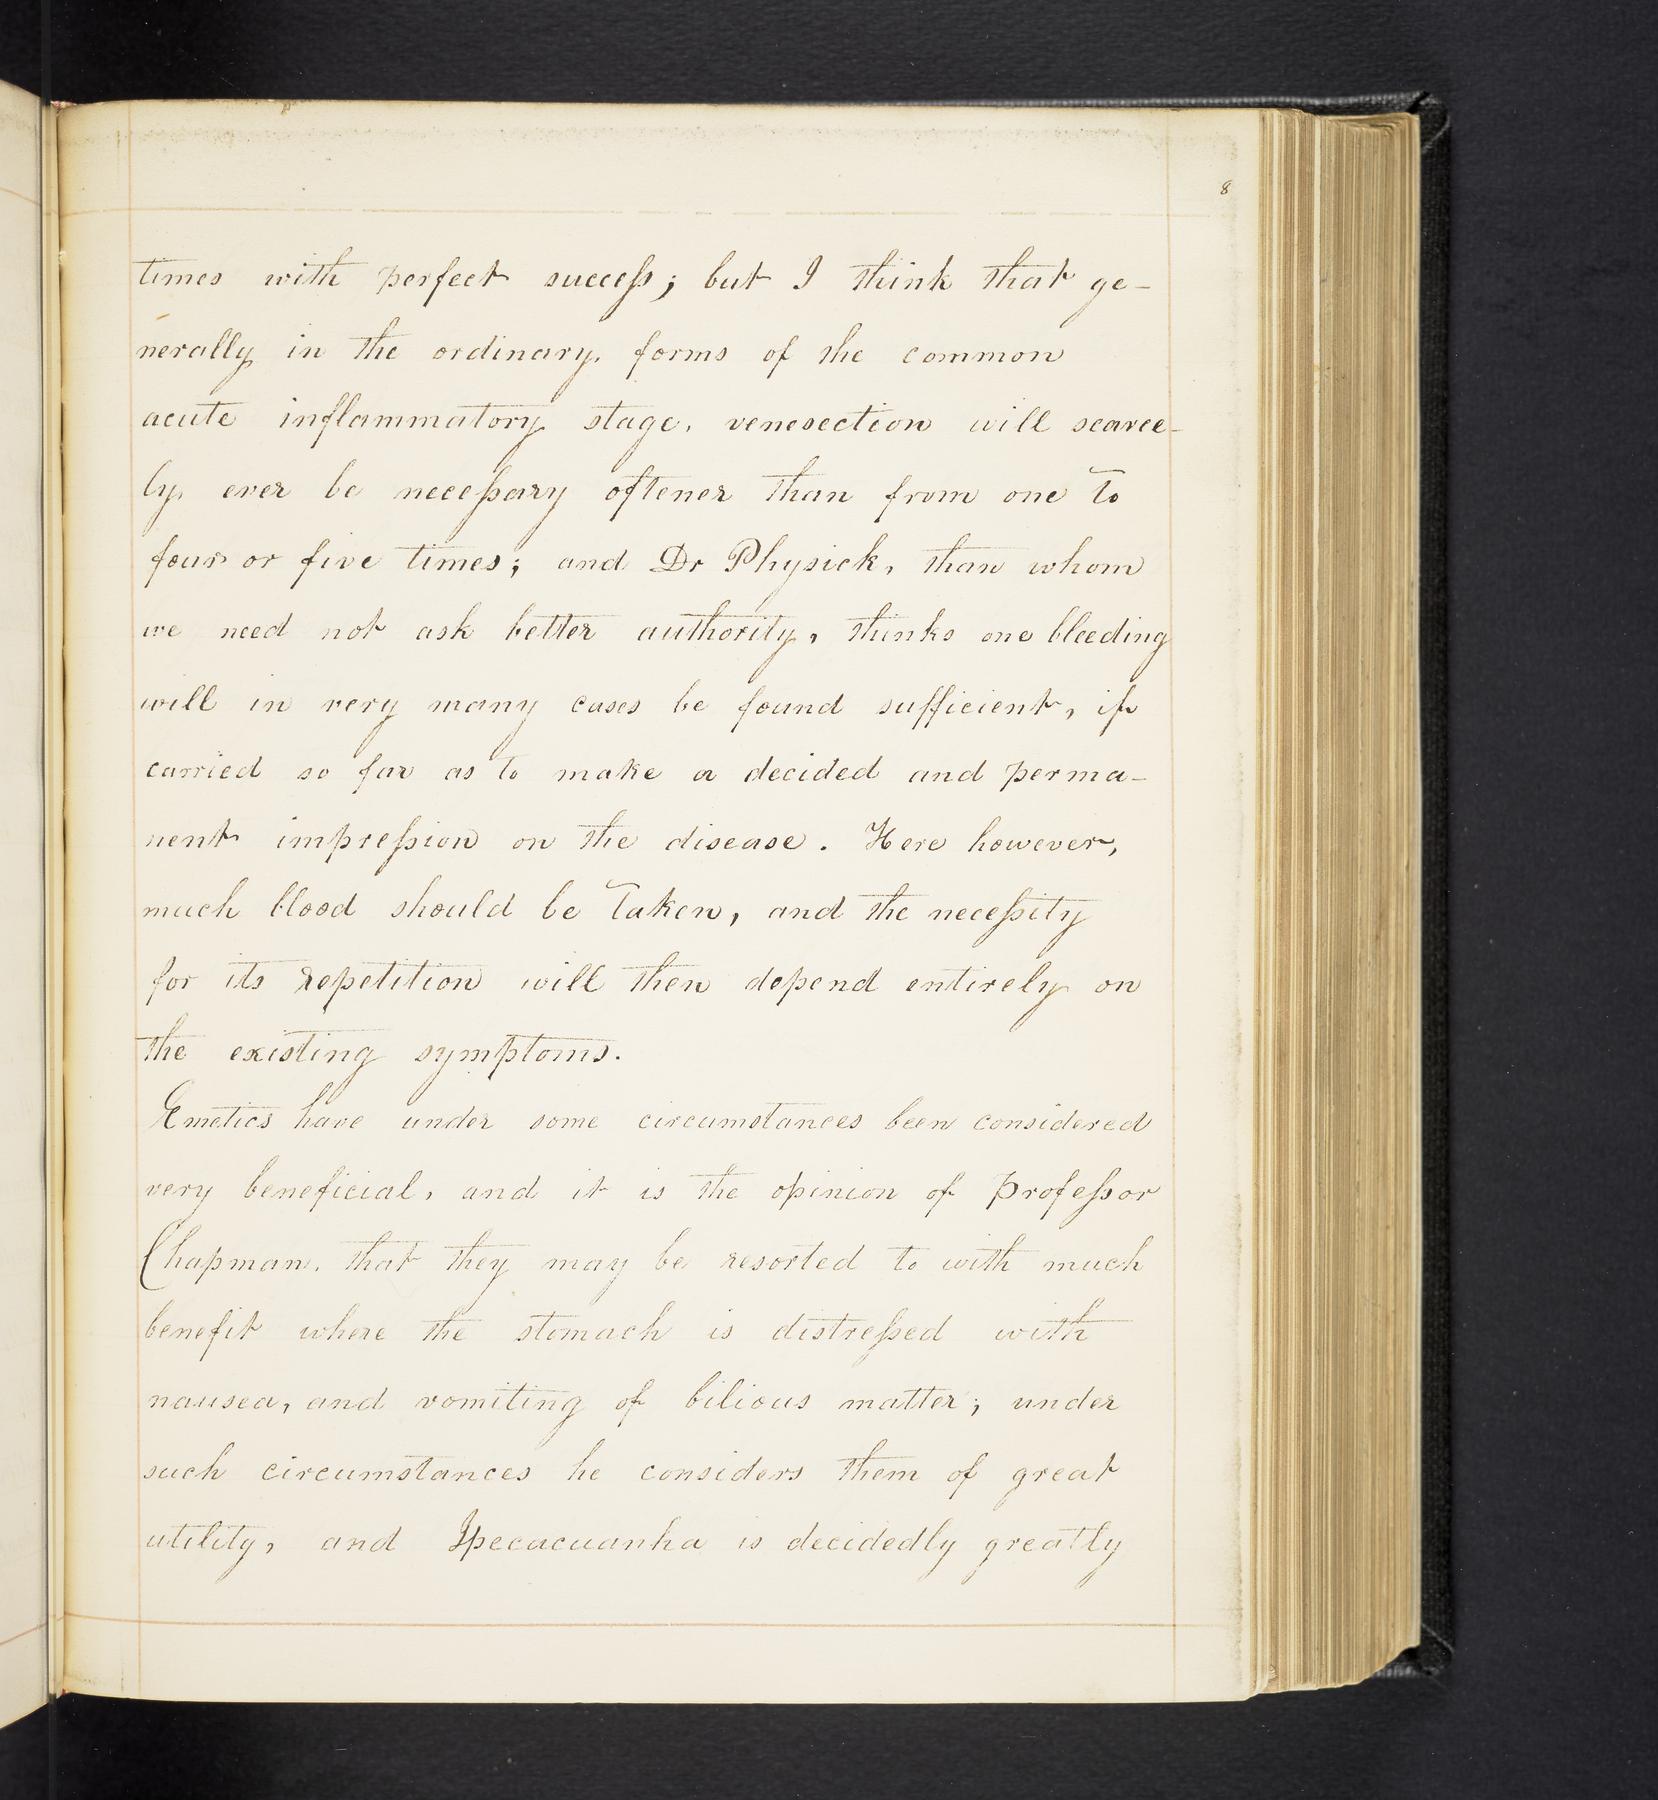 8
times with perfect success; but I think that ge-
nerally in the ordinary, forms of the common
acute inflammatory stage, venesection will scarce-
ly, ever be necessary oftener than from one to
four or five times; and Dr Physick, than whom
we need not ask better authority, thinks one bleeding
will in very many cases be found sufficient, if
carried so far as to make a decided and perma-
nent impression on the disease. Here however,
much blood should be taken, and the necessity
for its repetition will then depend entirely on
the existing symptoms.
Emetics have under some circumstances been considered
very beneficial, and it is the opinion of Professor
Chapman, that they may be resorted to with much
benefit where the stomach is distressed with
nausea, and vomiting of bilious matter; under
such circumstances he considers them of great
utility, and Ipecacuanha is decidedly greatly